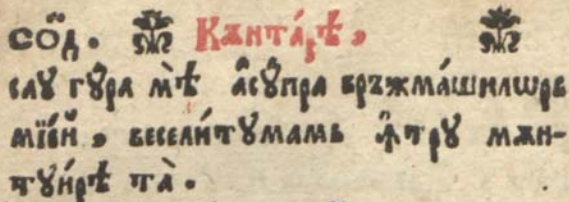 сои́д. Кѫнта́рѣ,
сау гꙋ́ра мѣ̀ а҆сꙋ́пра връжма́шилѡрь
мїе́й, весели́тꙋмамь ꙟ҆трꙋ мѫн-
тꙋи́рѣ та̀.